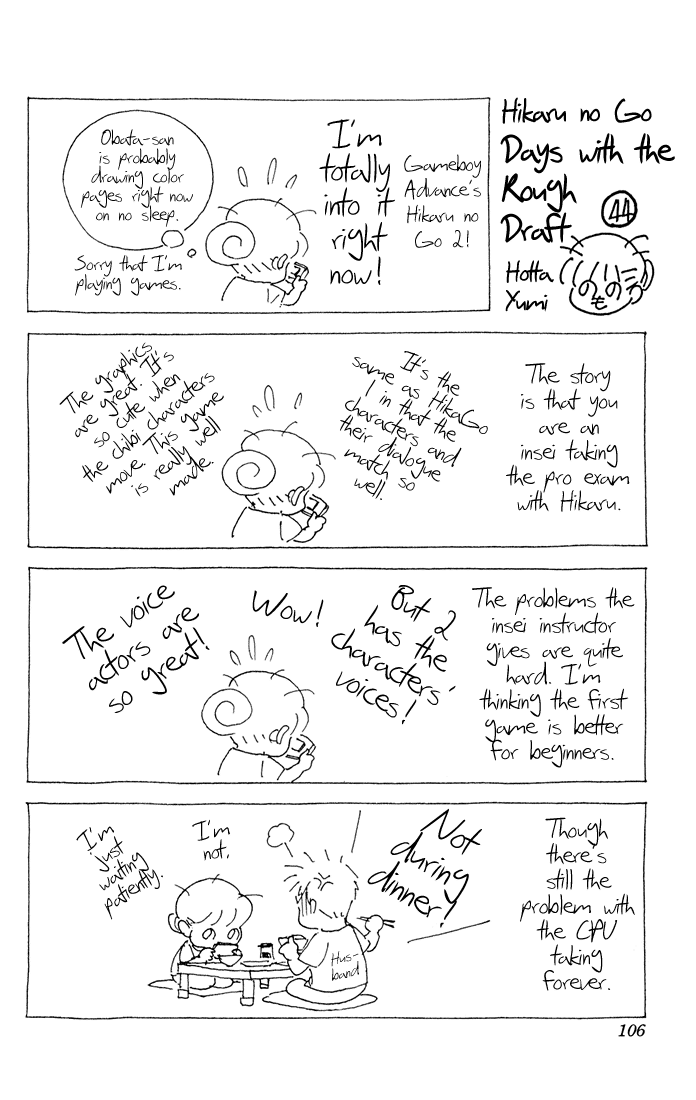 Hikaru no Go
Days with the
Rough
Draft
44
Hotta
Yumi
Gameboy
Advance's
Hikaru no
Go 2!
I'm
totally
into it
right
now!
Obata-san
is probably
drawing color
pages right now
on no sleep.
Sorry that I'm
playing games.
The story
is that you
are an
insei taking
the pro exam
with Hikaru.
It's the
same as HikaGo
1 in that the
characters and
their dialogue
match so
well.
The graphics
are great. It's
so cute when
the chibi characters
move. This game
is really well
made.
The problems the
insei instructor
gives are quite
hard. I'm
thinking the first
game is better
for beginners.
But 2
has the
characters'
voices!
Wow!
The voice
actors are
so great!
Though
there's
still the
problem with
the CPU
taking
forever.
Not
during
dinner!
Hus-
band
I'm
not.
I'm
just
waiting
patiently.
106